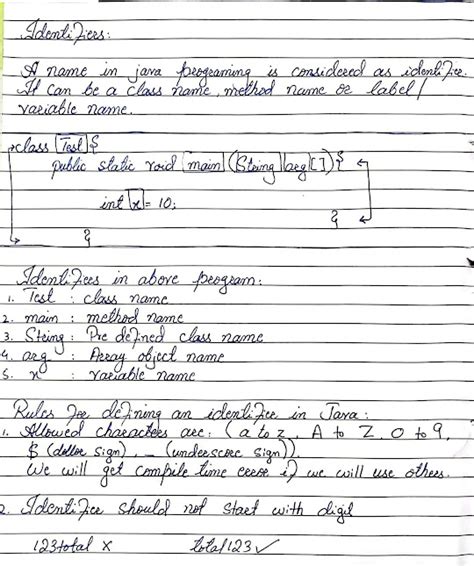 Identifiers:
A name in java programing is considered as identifier.
It can be a class name, method name or label/
variable name.
class Test {
public static void main (String arg []) {
int x = 10;
}
}
Identifiers in above program:
1. Test : class name
2. main : method name
3. String : Pre defined class name
4. arg : Array object name
5. x : variable name
Rules for defining an identifier in Java:
1. Allowed characters are: (a to z, A to Z, 0 to 9,
$ (dollar sign), _ (underscore sign)).
We will get compile time error if we will use others.
2. Identifier should not start with digit
123total x total123 ✓